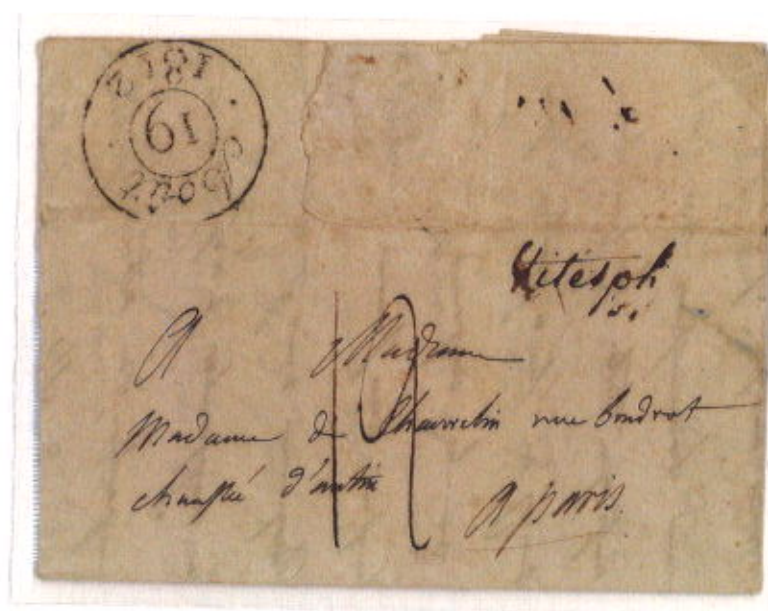 Août
19
1812
Vitepsk
A Madame
Madame de Chauvelin rue boudrot
chaussée d'antin
a paris